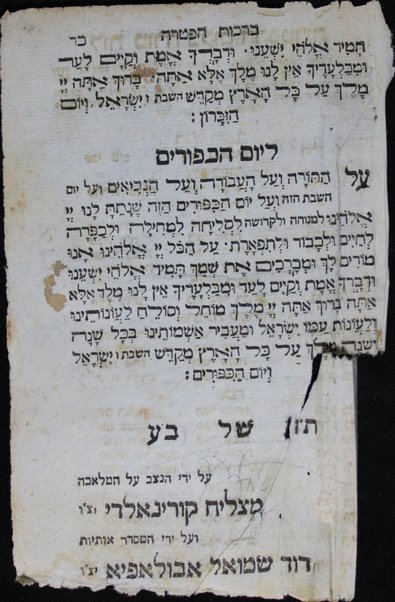 ברכות הפטרה כד
תמיד אלהי ישענו ודברך אמת וקיים לעד
ומבלעדיך אין לנו מלך אלא אתה ברוך אתה יי
מלך על כל הארץ מקדש השבת וישראל ויום
הזכרון:
ליום הכפורים
על התורה ועל העבודה ועל הנביאים ועל יום
השבת הזה ועל יום הכפורים הזה שנתת לנו יי
אלהינו למנוחה ולקדושה לסליחה למחילה ולכפרה
לחיים ולכבוד ולתפארת על הכל יי אלהינו אנו
מודים לך ומברכים את שמך תמיד אלהי ישענו
ודברך אמת וקיים לעד ומבלעדיך אין לנו מלך אלא
אתה ברוך אתה יי מלך מוחל וסולח לעונותינו
ולעונות עמו ישראל ומעביר אשמותינו בכל שנה
ושנה מלך על כל הארץ מקדש השבת וישראל
ויום הכפורים:
תזן של בע
על ידי הנצב על המלאכה
מצליח קורינאלדי יצ"ו
ועל ידי המסדר אותיות
דוד שמואל אבולאפיא יצ"ו